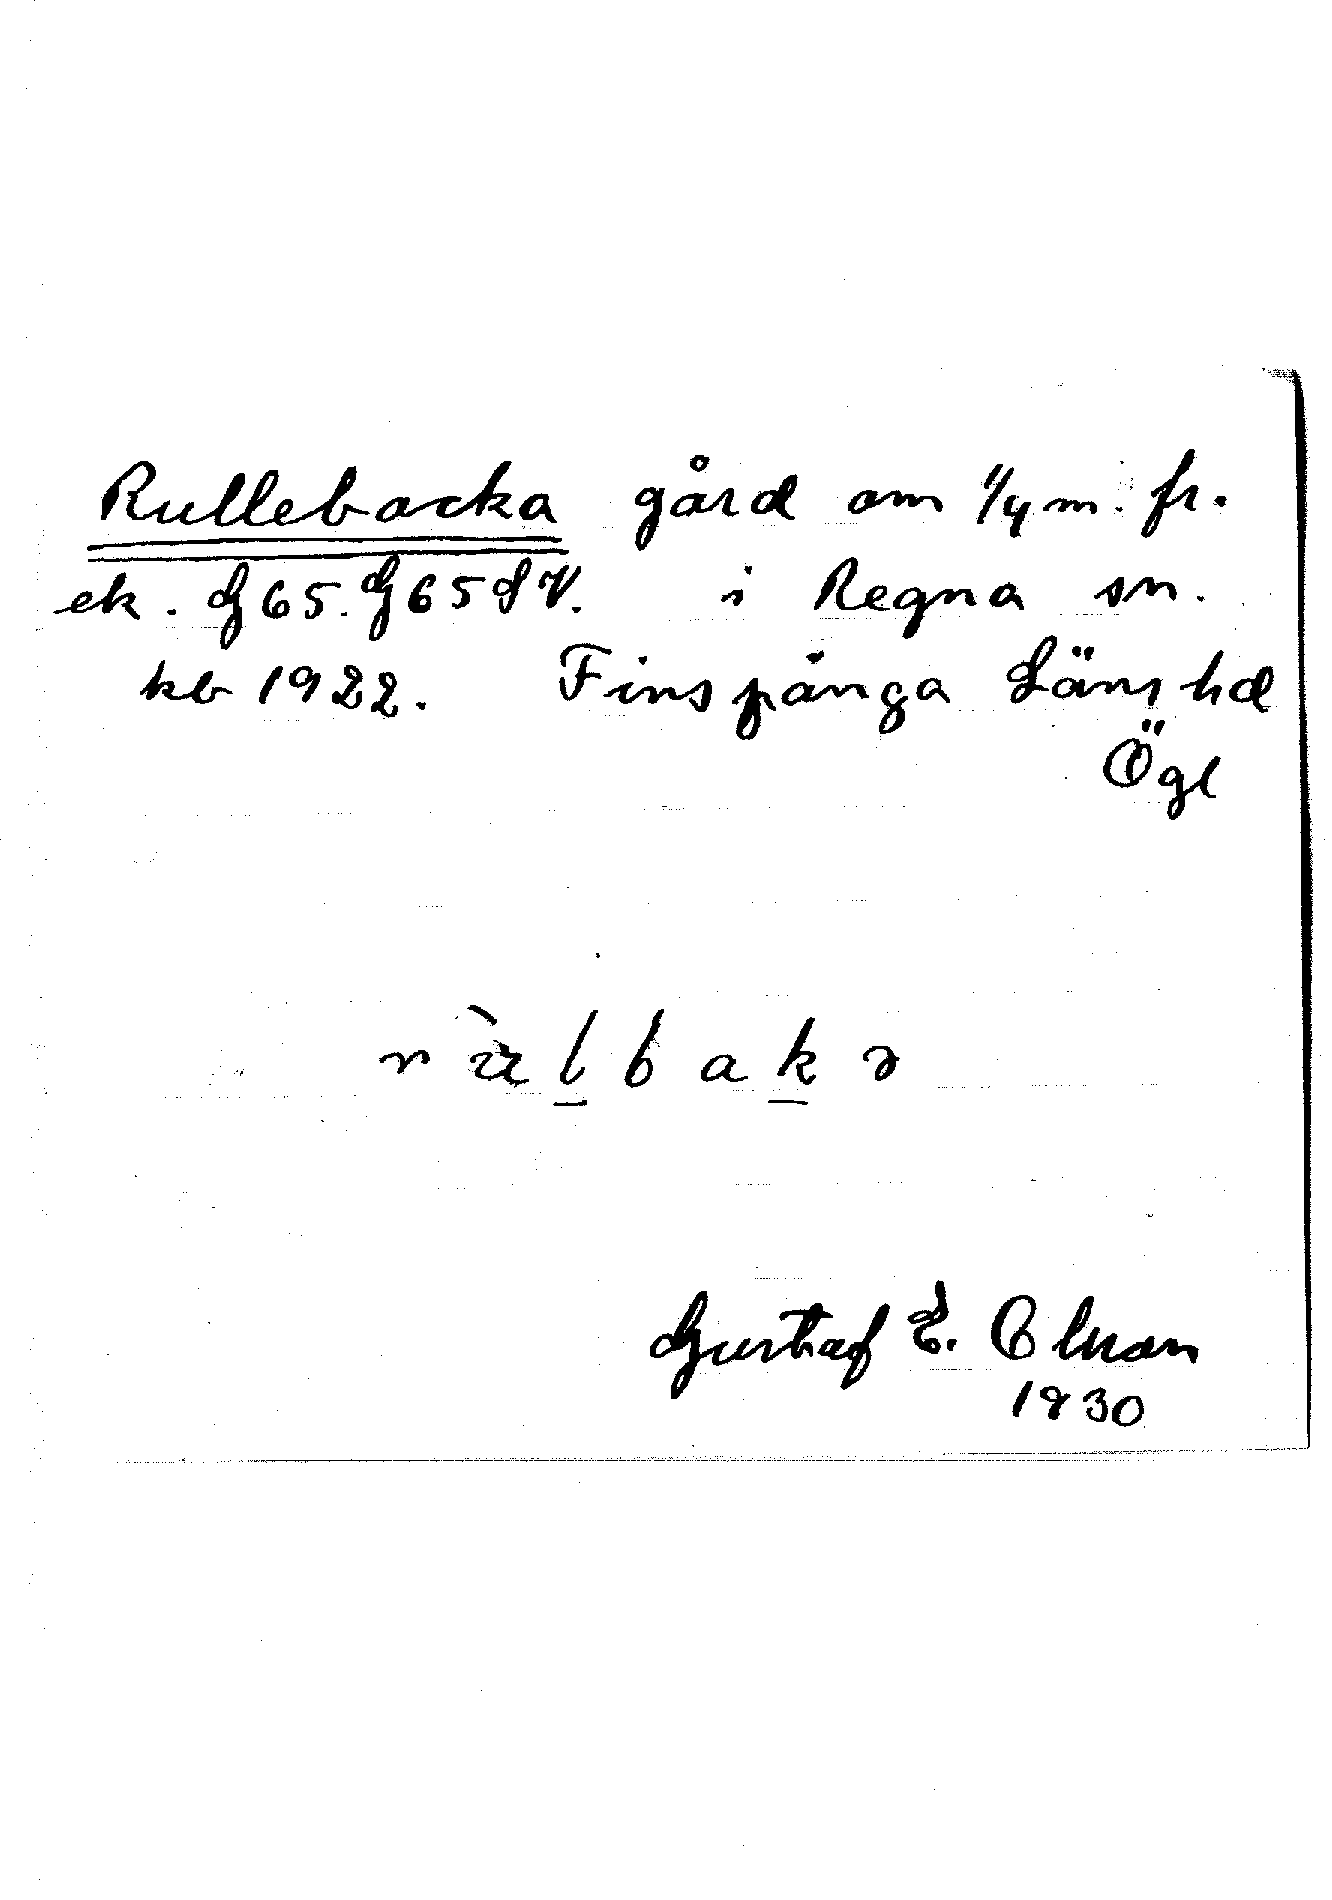 Rullebacka gård om 1/4 m. fr.
ek. G65. G65 SV. i Regna sn.
kb 1922. Finspånga Läns hd
Ögl
rùlbakə
Gustaf E. Olsson
1930